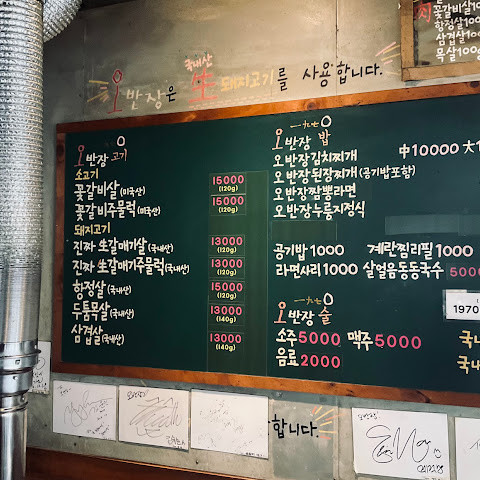 오반장은 국내산 生 돼지고기를 사용합니다.
꽃갈비살
항정살
삼겹살
목살100
오반장 고기
소고기
꽃갈비살(미국산) 15000 (120g)
꽃갈비주물럭(미국산) 15000 (120g)
돼지고기
진짜 生갈매기살(국내산) 13000 (120g)
진짜 生갈매기주물럭(국내산) 13000 (120g)
항정살(국내산) 15000 (120g)
두툼목살(국내산) 13000 (140g)
삼겹살(국내산) 13000 (140g)
오반장 밥
오반장김치찌개 中10000 大1
오반장된장찌개(공기밥포함)
오반장짬뽕라면
오반장누룽지정식
공기밥1000 계란찜리필1000
라면사리1000 살얼음동동국수 5000
오반장 술
소주5000 맥주5000
음료2000
1970
국
국
합니다.